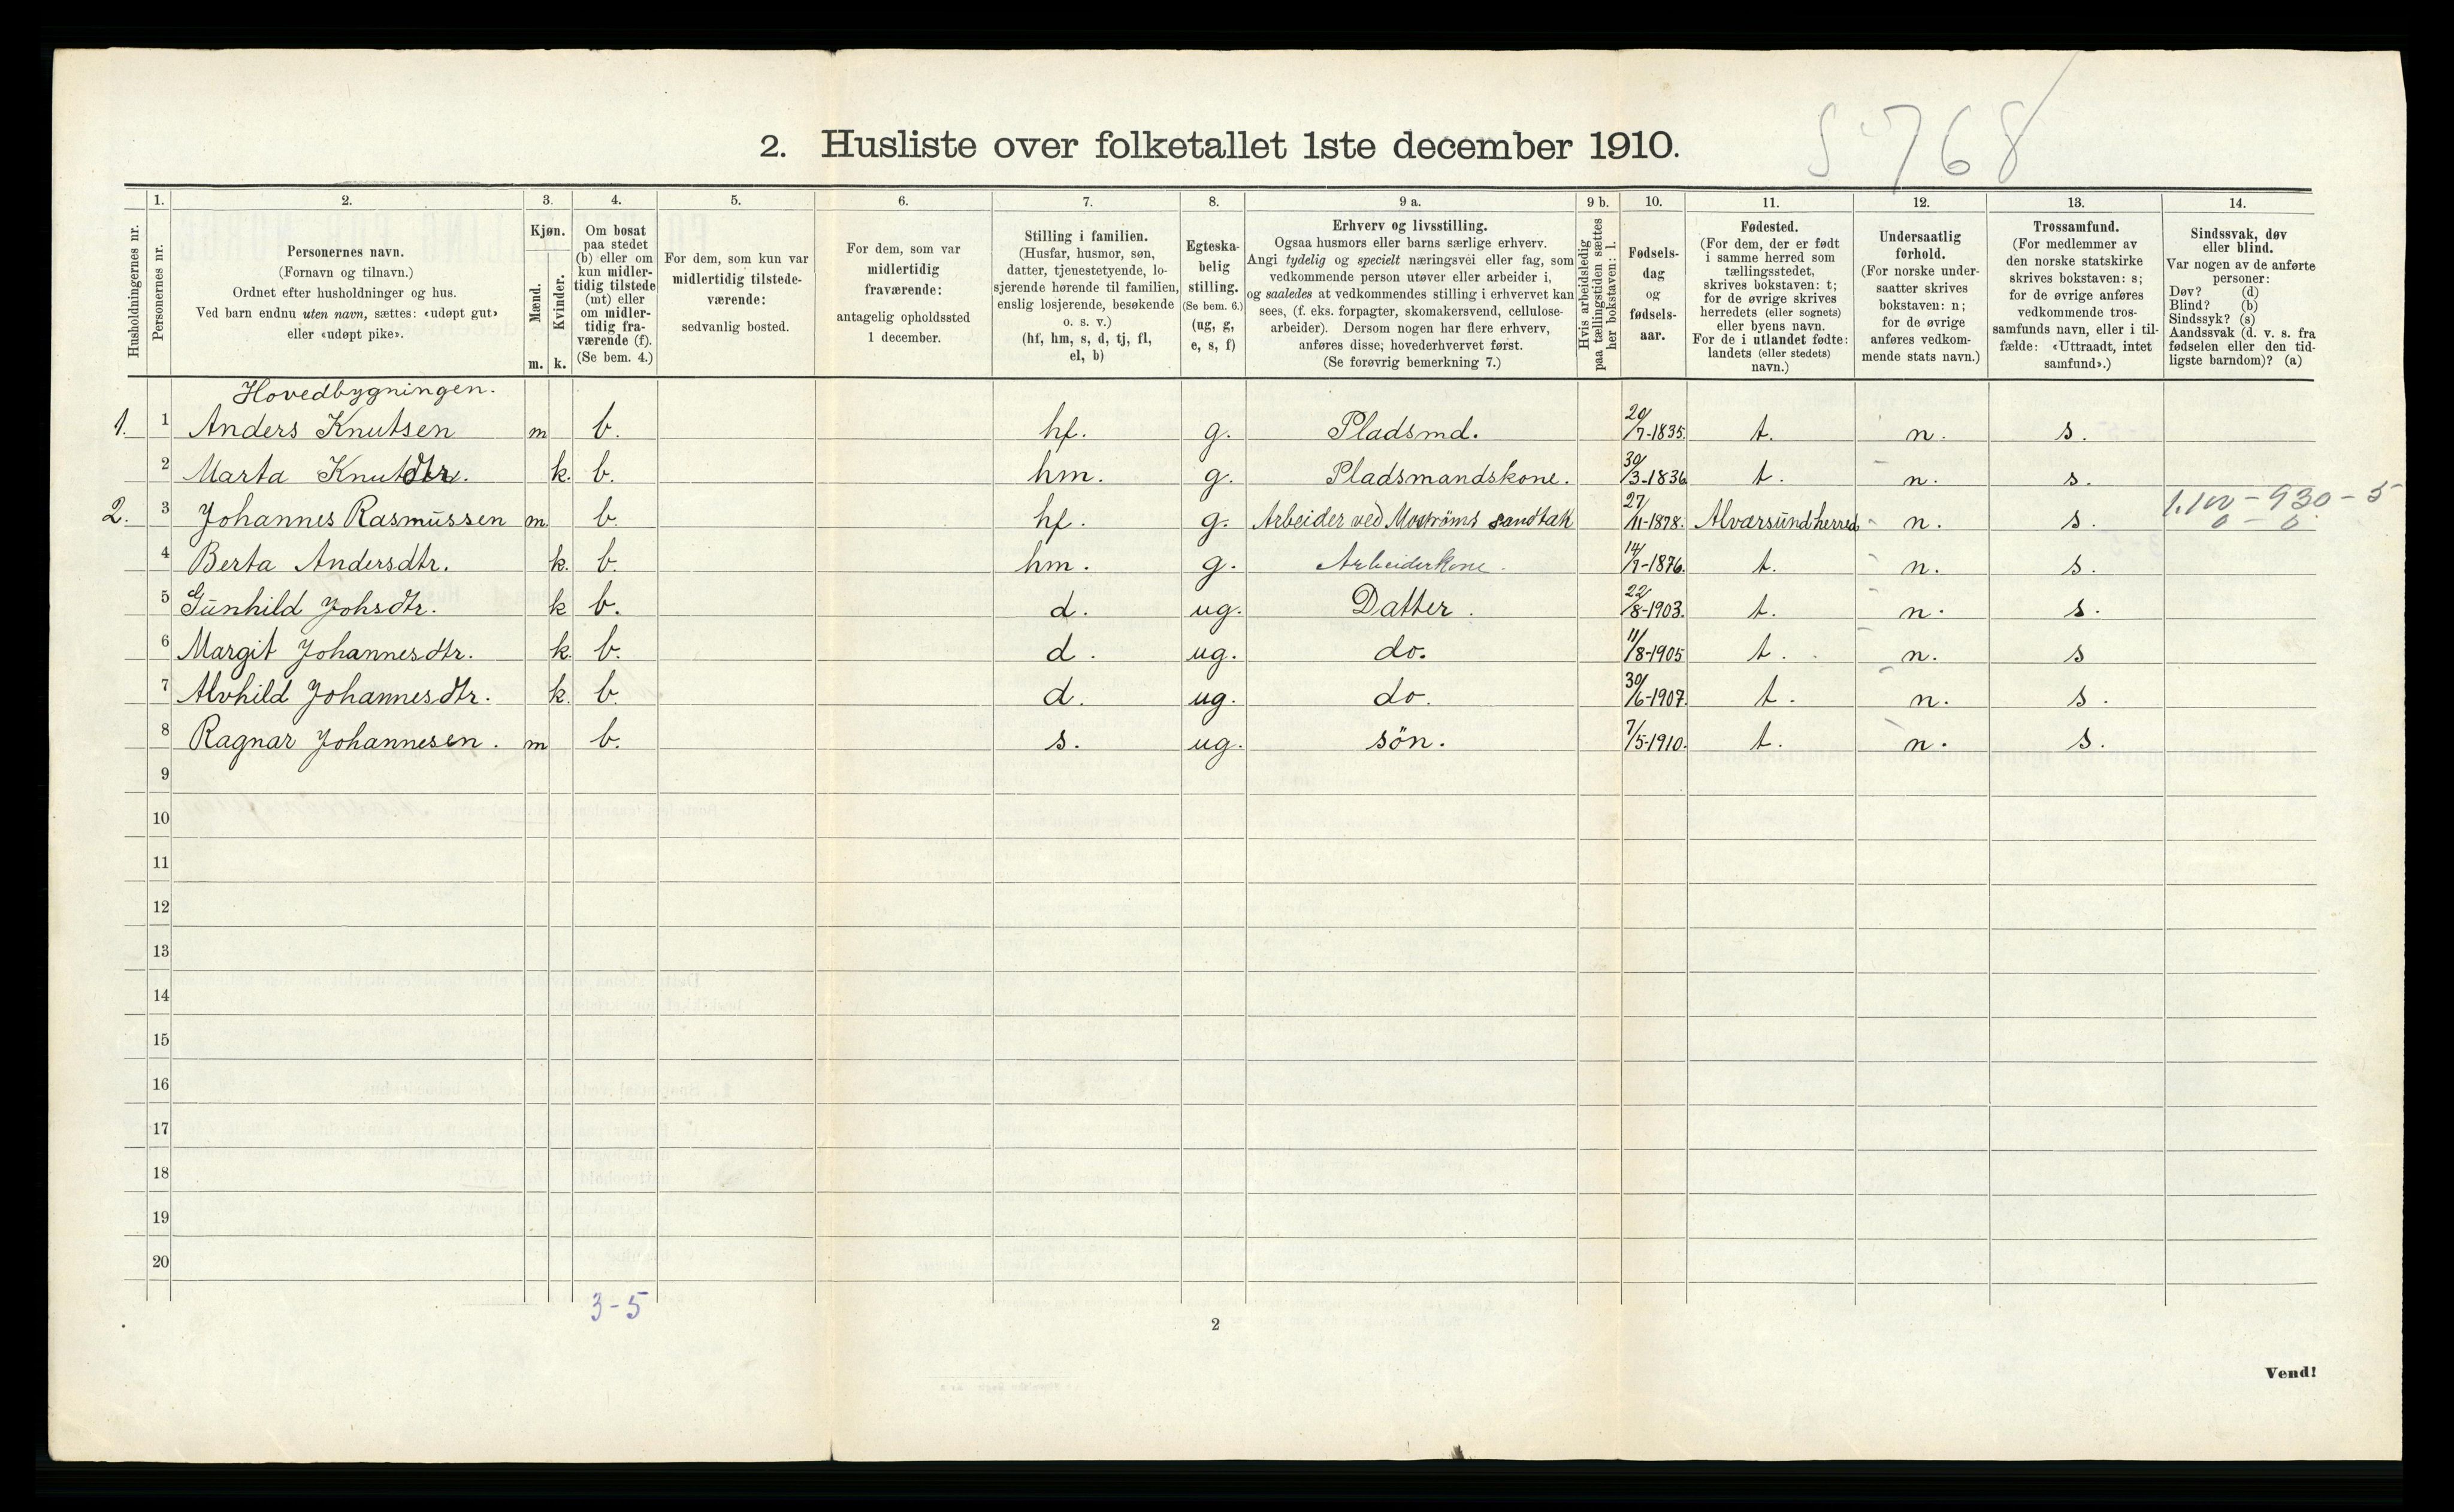 S 768
2. Husliste over folketallet 1ste december 1910.
Husholdningernes nr.
1.
Personernes nr.
2.
Personernes navn.
(Fornavn og tilnavn.)
Ordnet efter husholdninger og hus.
Ved barn endnu uten navn, sættes: «udøpt gut»
eller «udøpt pike».
3.
Kjøn.
Mænd.
Kvinder.
m. k.
4.
Om bosat
paa stedet
(b) eller om
kun midler-
tidig tilstede
(mt) eller
om midler-
tidig fra-
værende (f).
(Se bem. 4.)
5.
For dem, som kun var
midlertidig tilstede-
værende:
sedvanlig bosted.
6.
For dem, som var
midlertidig
fraværende:
antagelig opholdssted
1 december.
7.
Stilling i familien.
(Husfar, husmor, søn,
datter, tjenestetyende, lo-
sjerende hørende til familien,
enslig losjerende, besøkende
o. s. v.)
(hf, hm, s, d, tj, fl,
el, b)
8.
Egteska-
belig
stilling.
(Se bem. 6.)
(ug, g,
e, s, f)
9 a.
Erhverv og livsstilling.
Ogsaa husmors eller barns særlige erhverv.
Angi tydelig og specielt næringsvei eller fag, som
vedkommende person utøver eller arbeider i,
og saaledes at vedkommendes stilling i erhvervet kan
sees, (f. eks. forpagter, skomakersvend, cellulose-
arbeider). Dersom nogen har flere erhverv,
anføres disse; hovederhvervet først.
(Se forøvrig bemerkning 7.)
9 b.
Hvis arbeidsledig
paa tællingstiden sættes
her bokstaven: l.
10.
Fødsels-
dag
og
fødsels-
aar.
11.
Fødested.
(For dem, der er født
i samme herred som
tællingsstedet,
skrives bokstaven: t;
for de øvrige skrives
herredets (eller sognets)
eller byens navn.
For de i utlandet fødte:
landets (eller stedets)
navn.)
12.
Undersaatlig
forhold.
(For norske under-
saatter skrives
bokstaven: n;
for de øvrige
anføres vedkom-
mende stats navn.)
13.
Trossamfund.
(For medlemmer av
den norske statskirke
skrives bokstaven: s;
for de øvrige anføres
vedkommende tros-
samfunds navn, eller i til-
fælde: «Uttraadt, intet
samfund».)
14.
Sindssvak, døv
eller blind.
Var nogen av de anførte
personer:
Døv? (d)
Blind? (b)
Sindssyk? (s)
Aandssvak (d. v. s. fra
fødselen eller den tid-
ligste barndom)? (a)
Hovedbygningen.
1. 1 Anders Knutsen m b. hf. g. Pladsmd. 20/7-1835. t. n. s.
2 Marta Knutdtr. k. b. hm. g. Pladsmandskone. 30/3-1836 t. n. s.
2. 3 Johannes Rasmussen m. b. hf. g. Arbeider ved sandtak 27/11-1878. Alversund herred n. s. 1.100 - 930 - 5
0 - 0
4 Berta Andersdtr. k. b. hm. g. Arbeiderkone. 14/7-1876. t. n. s.
5 Gunhild Johsdtr. k b. d. ug. Datter. 22/8-1903. t. n. s.
6 Margit Johannesdtr. k. b. d. ug. do. 11/8-1905 t. n. s
7 Alvhild Johannesdtr. k. b. d. ug. do. 30/6-1907. t. n. s.
8 Ragnar Johannesen. m b. s. ug. sön. 7/5-1910. t. n. s.
9
10
11
12
13
14
15
16
17
18
19
20
3-5
2
Vend!